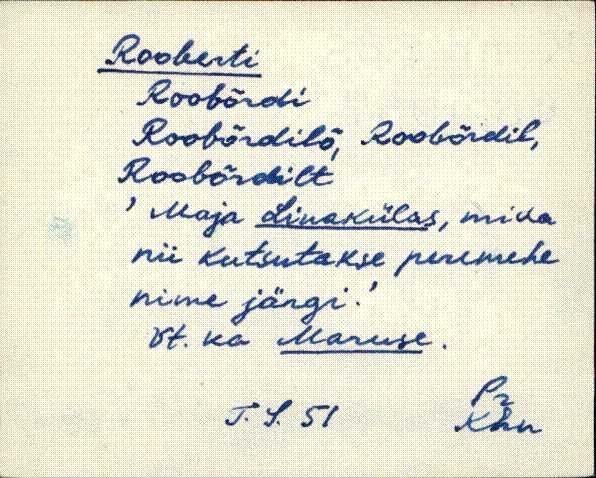 Rooberti
Roobõrdi
Roobõrdilõ, Roobõrdil,
Roobõrdilt
' Maja Linakülas, mida
nii kutsutakse peremehe
nime järgi.'
Vt. ka Maruse.
J. S. 51 Pr
Khn